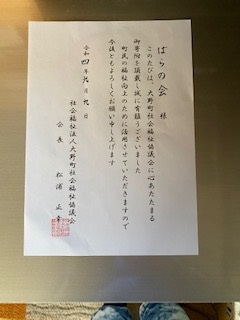 ばらの会 様
このたびは、大野町社会福祉協議会に心あたたまる
御寄附を頂戴し誠に有難うございました
町民の福祉向上のために活用させていただきますので
今後ともよろしくお願い申し上げます
令和四年 月九日
社会福祉法人大野町社会福祉協議会
会長 松浦